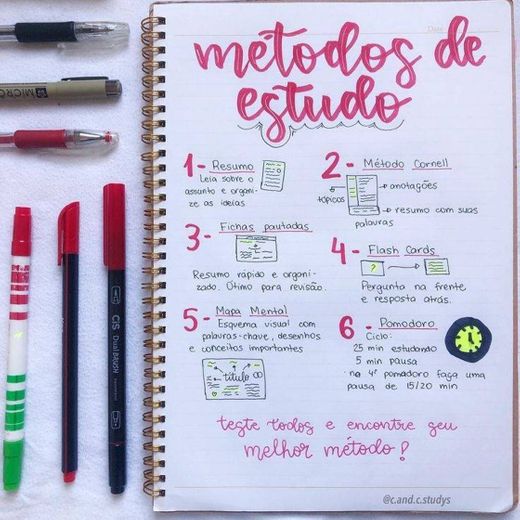 Date
métodos de
estudo
1- Resumo
Leia sobre o
assunto e organi-
ze as ideias
2- Método Cornell
→ anotações
tópicos
→ resumo com suas
palavras
3- Fichas pautadas
Resumo rápido e organi-
zado. Ótimo para revisão.
4- Flash Cards
?
Pergunta na frente
e resposta atrás.
5- Mapa Mental
Esquema visual com
palavras-chave, desenhos
e conceitos importantes
título
6- Pomodoro
Ciclo:
25 min estudando
5 min pausa
· no 4º pomodoro faça uma
pausa de 15/20 min
teste todos e encontre seu
melhor método!
@c.and.c.studys
MICRO
CIS
Dual BRUSH